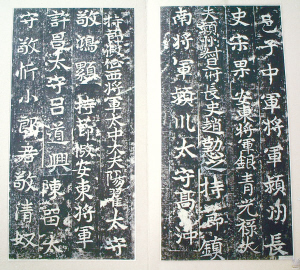 邑子中軍將軍潁州長
史宋果安東將軍銀青光祿大
夫府長史趙勤之持節鎮
南將軍潁川太守高沖
將軍太中大夫陽翟太守
敬鴻顯持節安東將軍
許昌太守呂道興陳留太
守敬忻小郎君敬清奴